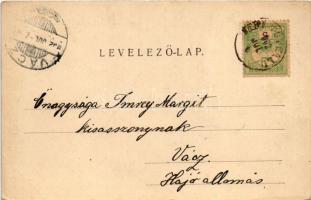 LEVELEZŐ-LAP.
VÁCZ
Őnagysága Imrey Margit
kisasszonynak
Vácz
Hajó állomás